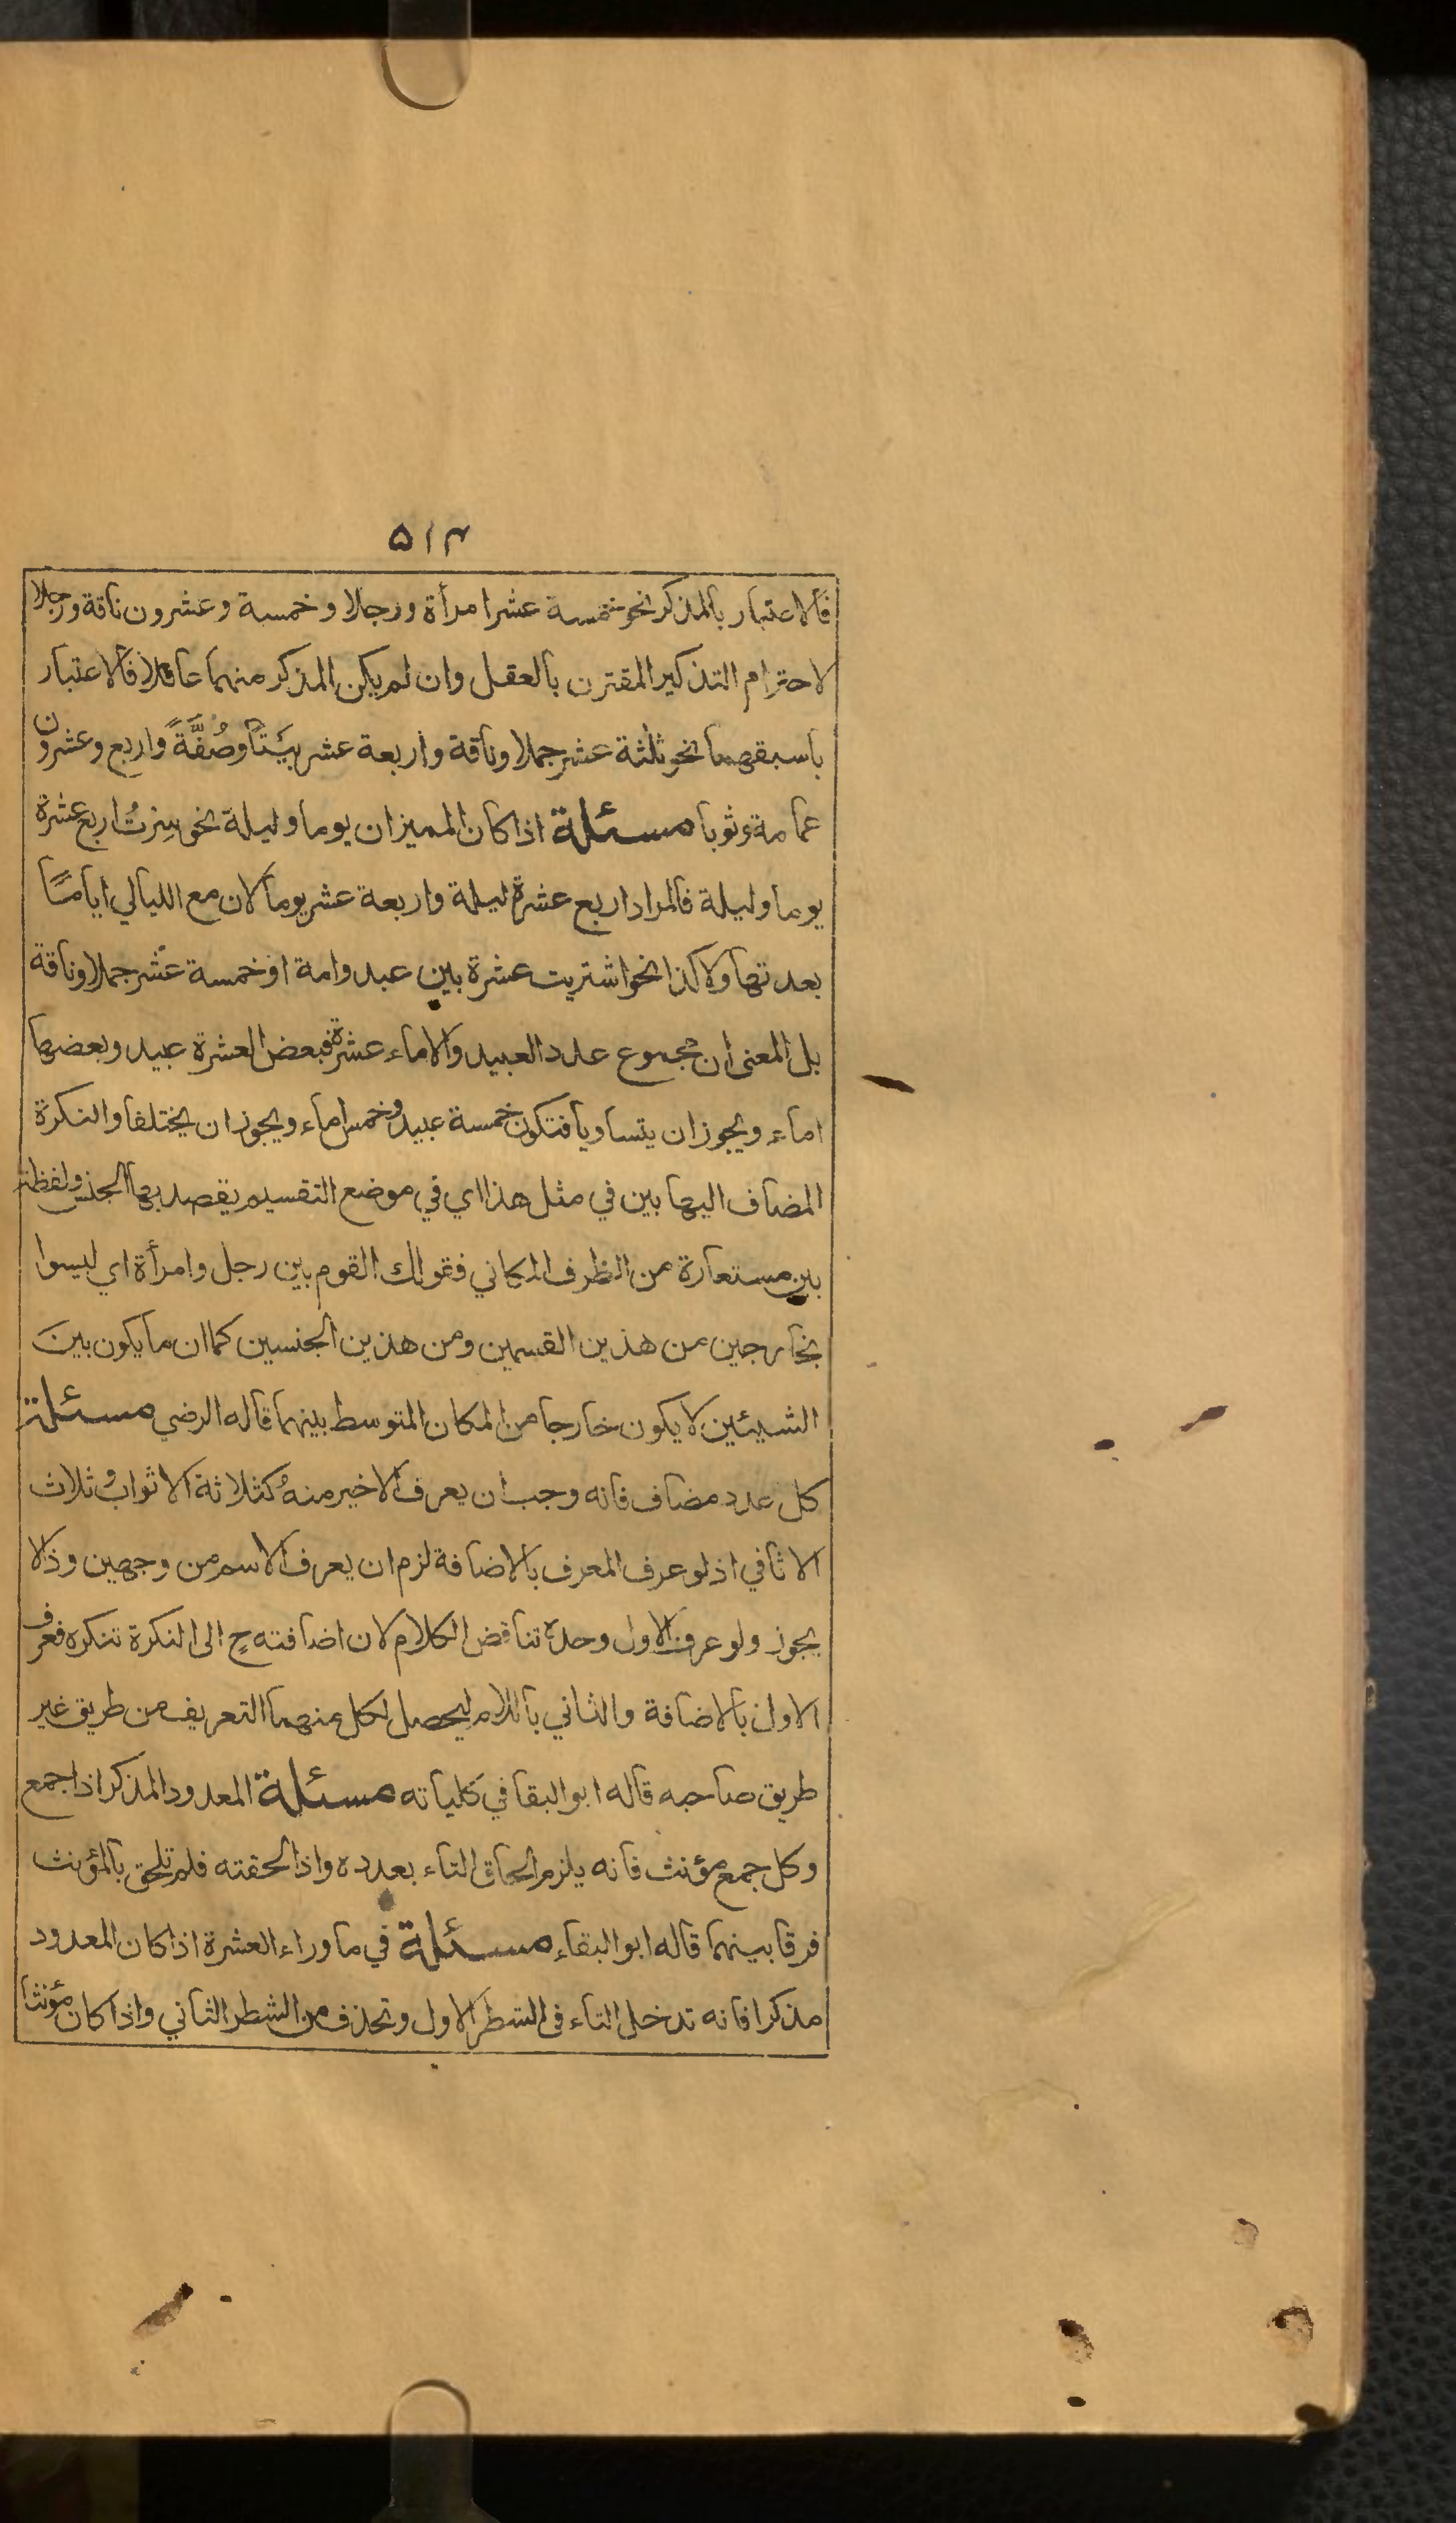 ۵۱۴
فالاعتبار بالمذكر نحو خمسة عشر امرأة ورجلا وخمسة وعشرون ناقة ورجلا
لاحترام التذكير المقترن بالعقل وان لم يكن المذكر منهما عاقلا فالاعتبار
باسبقهما نحو ثلثة عشر جملا وناقة واربعة عشر بيتًا وصُفَّةً واربع وعشرون
عمامة وثوبا مسئلة اذا كان المميزان يوما وليلة نحو سِرتُ اربع عشرة
يوما وليلة فالمراد اربع عشرة ليلة واربعة عشر يوما لان مع الليالي اياما
بعدتها ولا كذا نحو اشتريت عشرة بين عبد وامة او خمسة عشر جملا وناقة
بل المعنى ان مجموع عدد العبيد والاماء عشرة فبعض العشرة عبيد وبعضها
اماء ويجوز ان يتساويا فتكون خمسة عبيد وخمس اماء ويجوز ان يختلفا والنكرة
المضاف اليها بين في مثل هذا اي في موضع التقسيم يقصد بها الجنس ولفظة
بين مستعارة من الظرف المكاني فقولك القوم بين رجل وامرأة اي ليسوا
بخارجين من هذين القسمين ومن هذين الجنسين كما ان ما يكون بينَ
الشيئين لا يكون خارجا من المكان المتوسط بينهما قاله الرضي مسئلة
كل عدد مضاف فانه وجب ان يعرف الاخير منهُ كثلاثة الاثواب وثلاث
الاثافي اذ لو عرف المعرف بالاضافة لزم ان يعرف الاسم من وجهين وذا لا
يجوز ولو عرف الاول وحده تناقض الكلام لان اضافته ح الى النكرة تنكره فعرف
الاول بالاضافة والثاني باللام ليحصل لكل منهما التعريف من طريق غير
طريق صاحبه قاله ابو البقا في كلياته مسئلة المعدود المذكر اذا جمع
وكل جمع مؤنث فانه يلزم الحاق التاء بعدده واذا لحقته فلم تلحق بالمؤنث
فرقا بينهما قاله ابو البقاء مسئلة في ما وراء العشرة اذا كان المعدود
مذكرا فانه تدخل التاء في الشطر الاول وتحذف من الشطر الثاني واذا كان مؤنثا